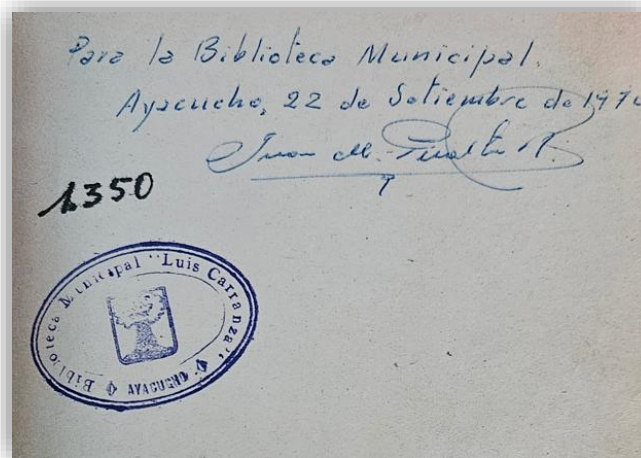 Para la Biblioteca Municipal.
Ayacucho, 22 de Setiembre de
Juan M.
1350
Biblioteca Municipal "Luis Carranza"
AYACUCHO